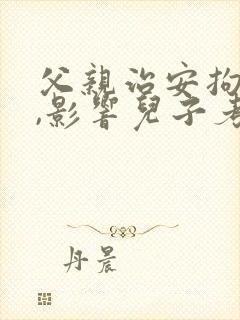 父親治安拘
,影響兒子考
丹晨